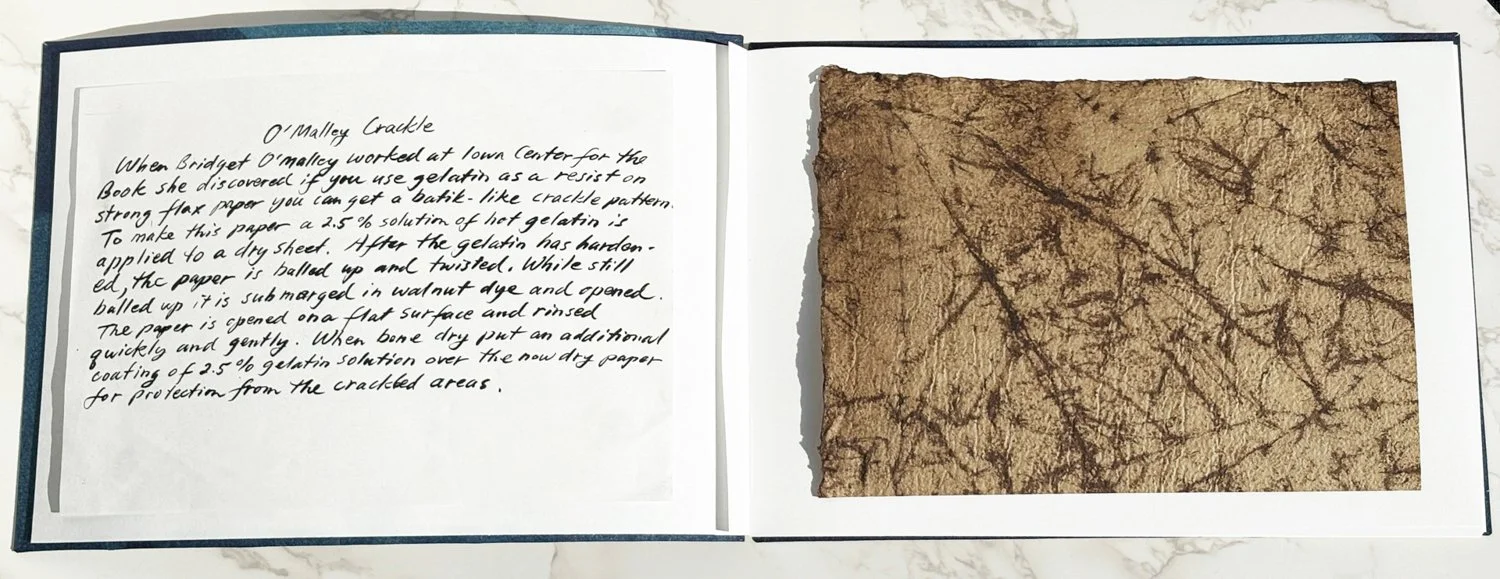 O'Malley Crackle
When Bridget O'malley worked at Iowa Center for the
Book she discovered if you use gelatin as a resist on
strong flax paper you can get a batik-like crackle pattern.
To make this paper a 2.5% solution of hot gelatin is
applied to a dry sheet. After the gelatin has harden-
ed, the paper is balled up and twisted. While still
balled up it is submarged in walnut dye and opened.
The paper is opened on a flat surface and rinsed
quickly and gently. When bone dry put an additional
coating of 2.5% gelatin solution over the now dry paper
for protection from the crackled areas.